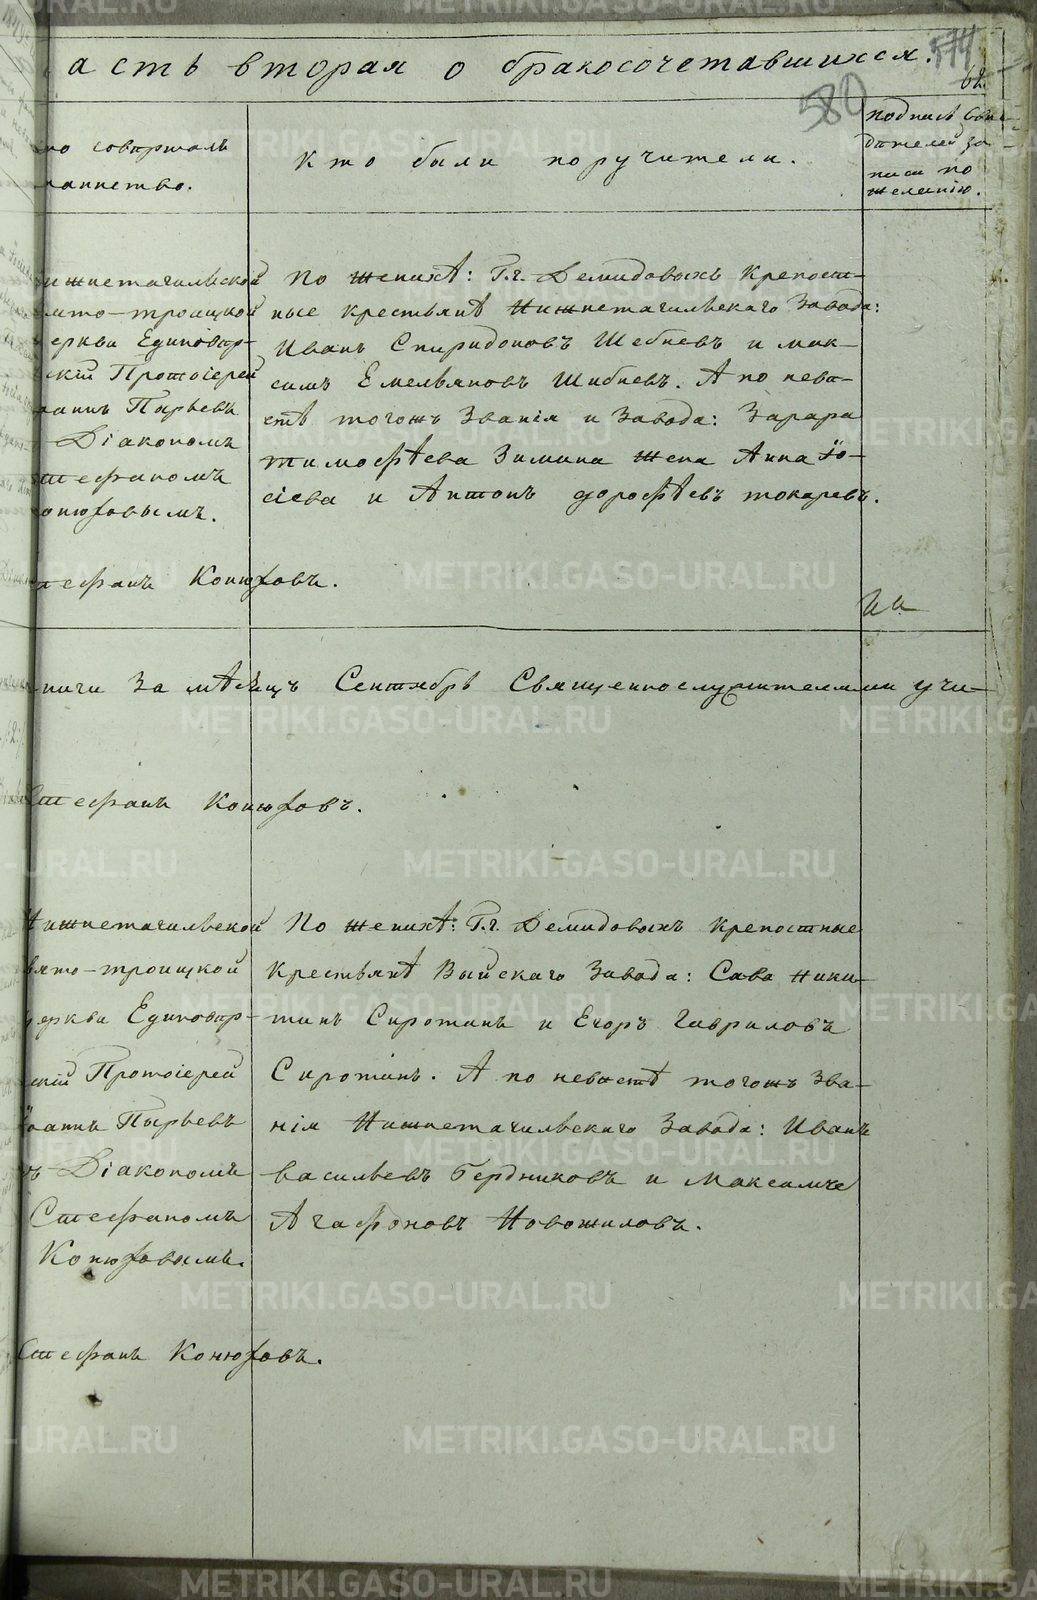 асть вторая о бракосочетавшихся.
574
62
580
то совершалъ
таинство.
Кто были поручители.
подпись Сви-
дѣтелей за-
писи по
желанію.
ижнетагильской
вято-троицкой
церкви Единовѣр-
скій Протоіерей
Іоаннъ Пырьевъ
Діакономъ
Стефаномъ
Конюховымъ.
По женихѣ: Г.г. Демидовыхъ Крепост-
ные крестьянѣ Нижнетагильскаго Завода:
Иванъ Спиридоновъ Шебневъ и мак-
симъ Емельяновъ Шибневъ. А по невѣ-
стѣ тогожъ Званія и Завода: Захара
тимофѣева Зимина жена Анна Іо-
сіева и Антонъ дорофѣевъ токаревъ.
тефанъ Конюховъ.
ниги За мѣсяцъ Сентябрь Священнослужителями учи-
Стефанъ Конюховъ.
Нижнетагильской
вято-троицкой
церкви Единовѣр-
скій Протоіерей
Іоаннъ Пырьевъ
ъ Діакономъ
Стефаномъ
Конюховымъ.
По женихѣ: Г.г. Демидовыхъ Крепостные
Крестьянѣ Выйскаго Завода: Сава Ники-
тинъ Сиротинъ и Егоръ Гавриловъ
Сиротинъ. А по невѣстѣ тогожъ Зва-
нія Нижнетагильскаго Завода: Иванъ
васильевъ Бердниковъ и Максимъ
Агафоновъ Новожиловъ.
Стефанъ Конюховъ.
METRIKI.GASO-URAL.RU